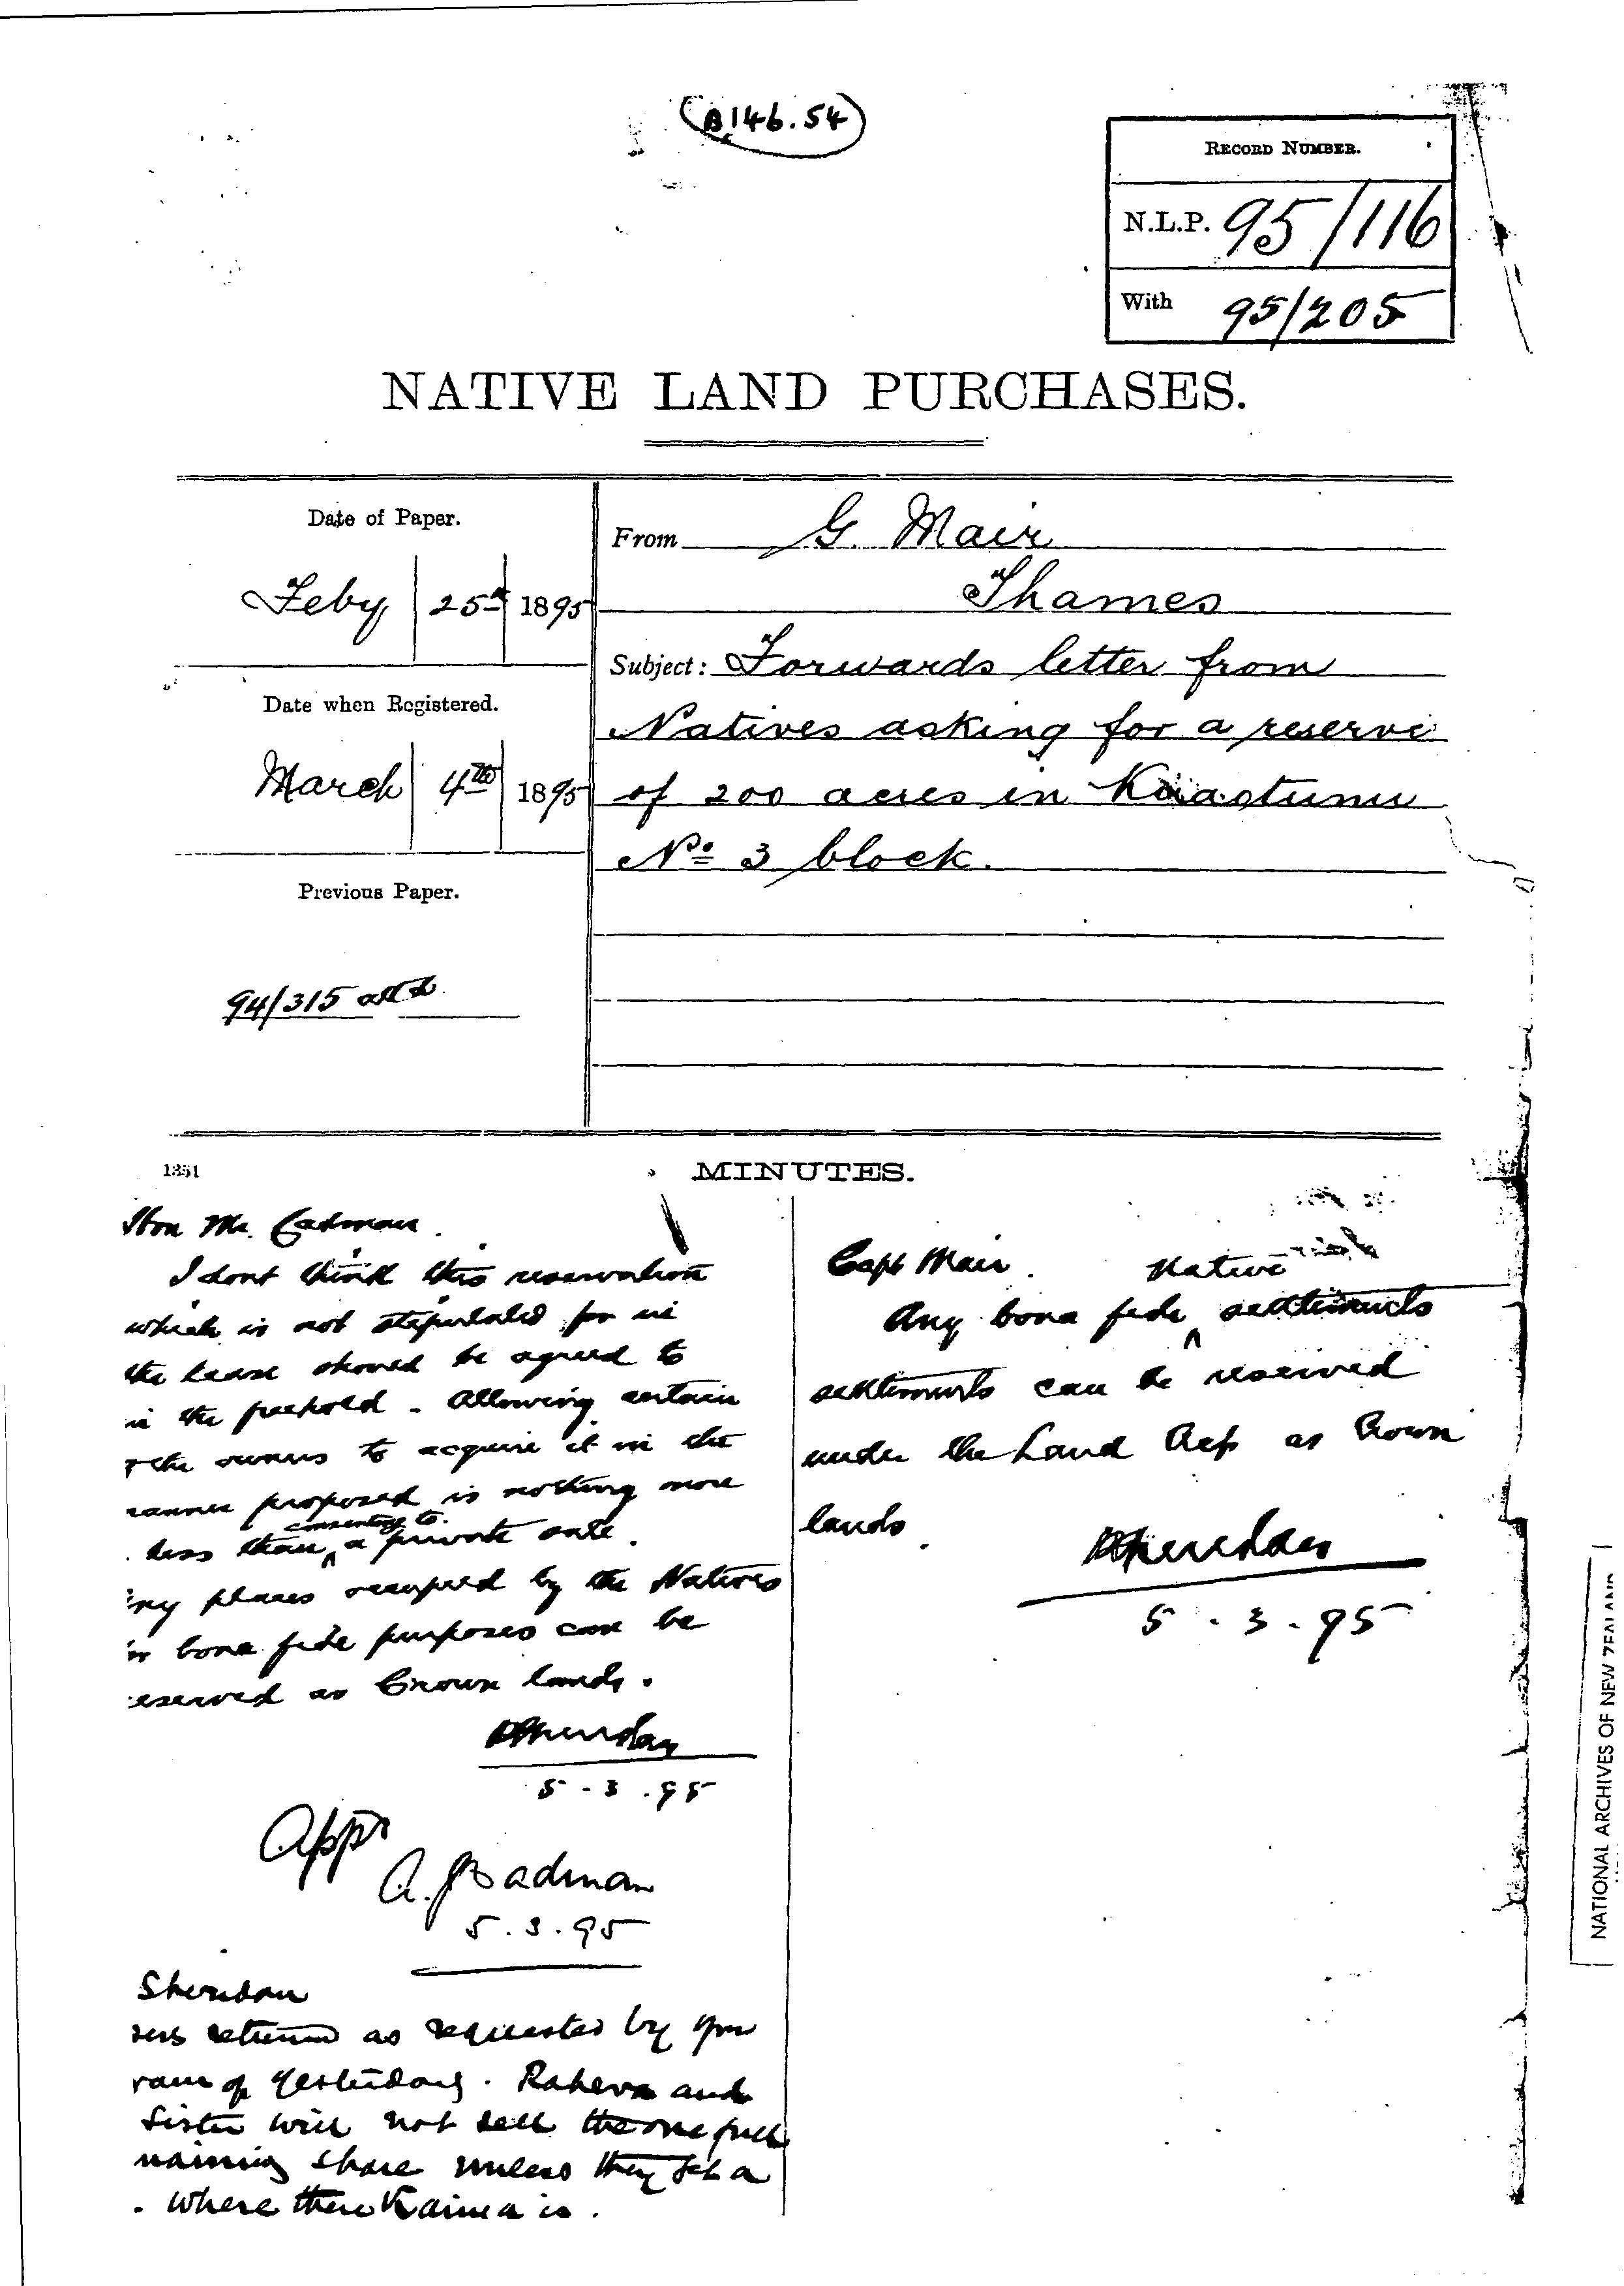 B 146.54
RECORD NUMBER.
N.L.P. 95/116
With 95/205
NATIVE LAND PURCHASES.
Date of Paper.
Feby 25th 1895
Date when Registered.
March 4th 1895
Previous Paper.
94/315 attd
From G. Mair
Thames
Subject: Forwards letter from
Natives asking for a reserve
of 200 acres in Kuaotunu
No 3 block.
1351
MINUTES.
Hon Mr. Cadman.
I dont think this reservation
which is not stipulated for in
the lease should be agreed to
in the freehold. Allowing certain
of the owners to acquire it in the
manner proposed is nothing more
less than consenting to a private sale.
ny places occupied by the Natives
bona fide purposes can be
eserved as Crown lands.
PSheridan
5-3.95
Appr
A. J Cadman
5.3.95
Sheridan
returned as requested by your
ram of yesterday. and
Sister will not sell the one full
maining share unless they get a
. where there Kainga is.
Capt Mair.
Native
Any bona fide settlements
settlements can be reserved
under the Land Act as Crown
lands.
PSheridan
5.3.95
NATIONAL ARCHIVES OF NEW ZEALAND